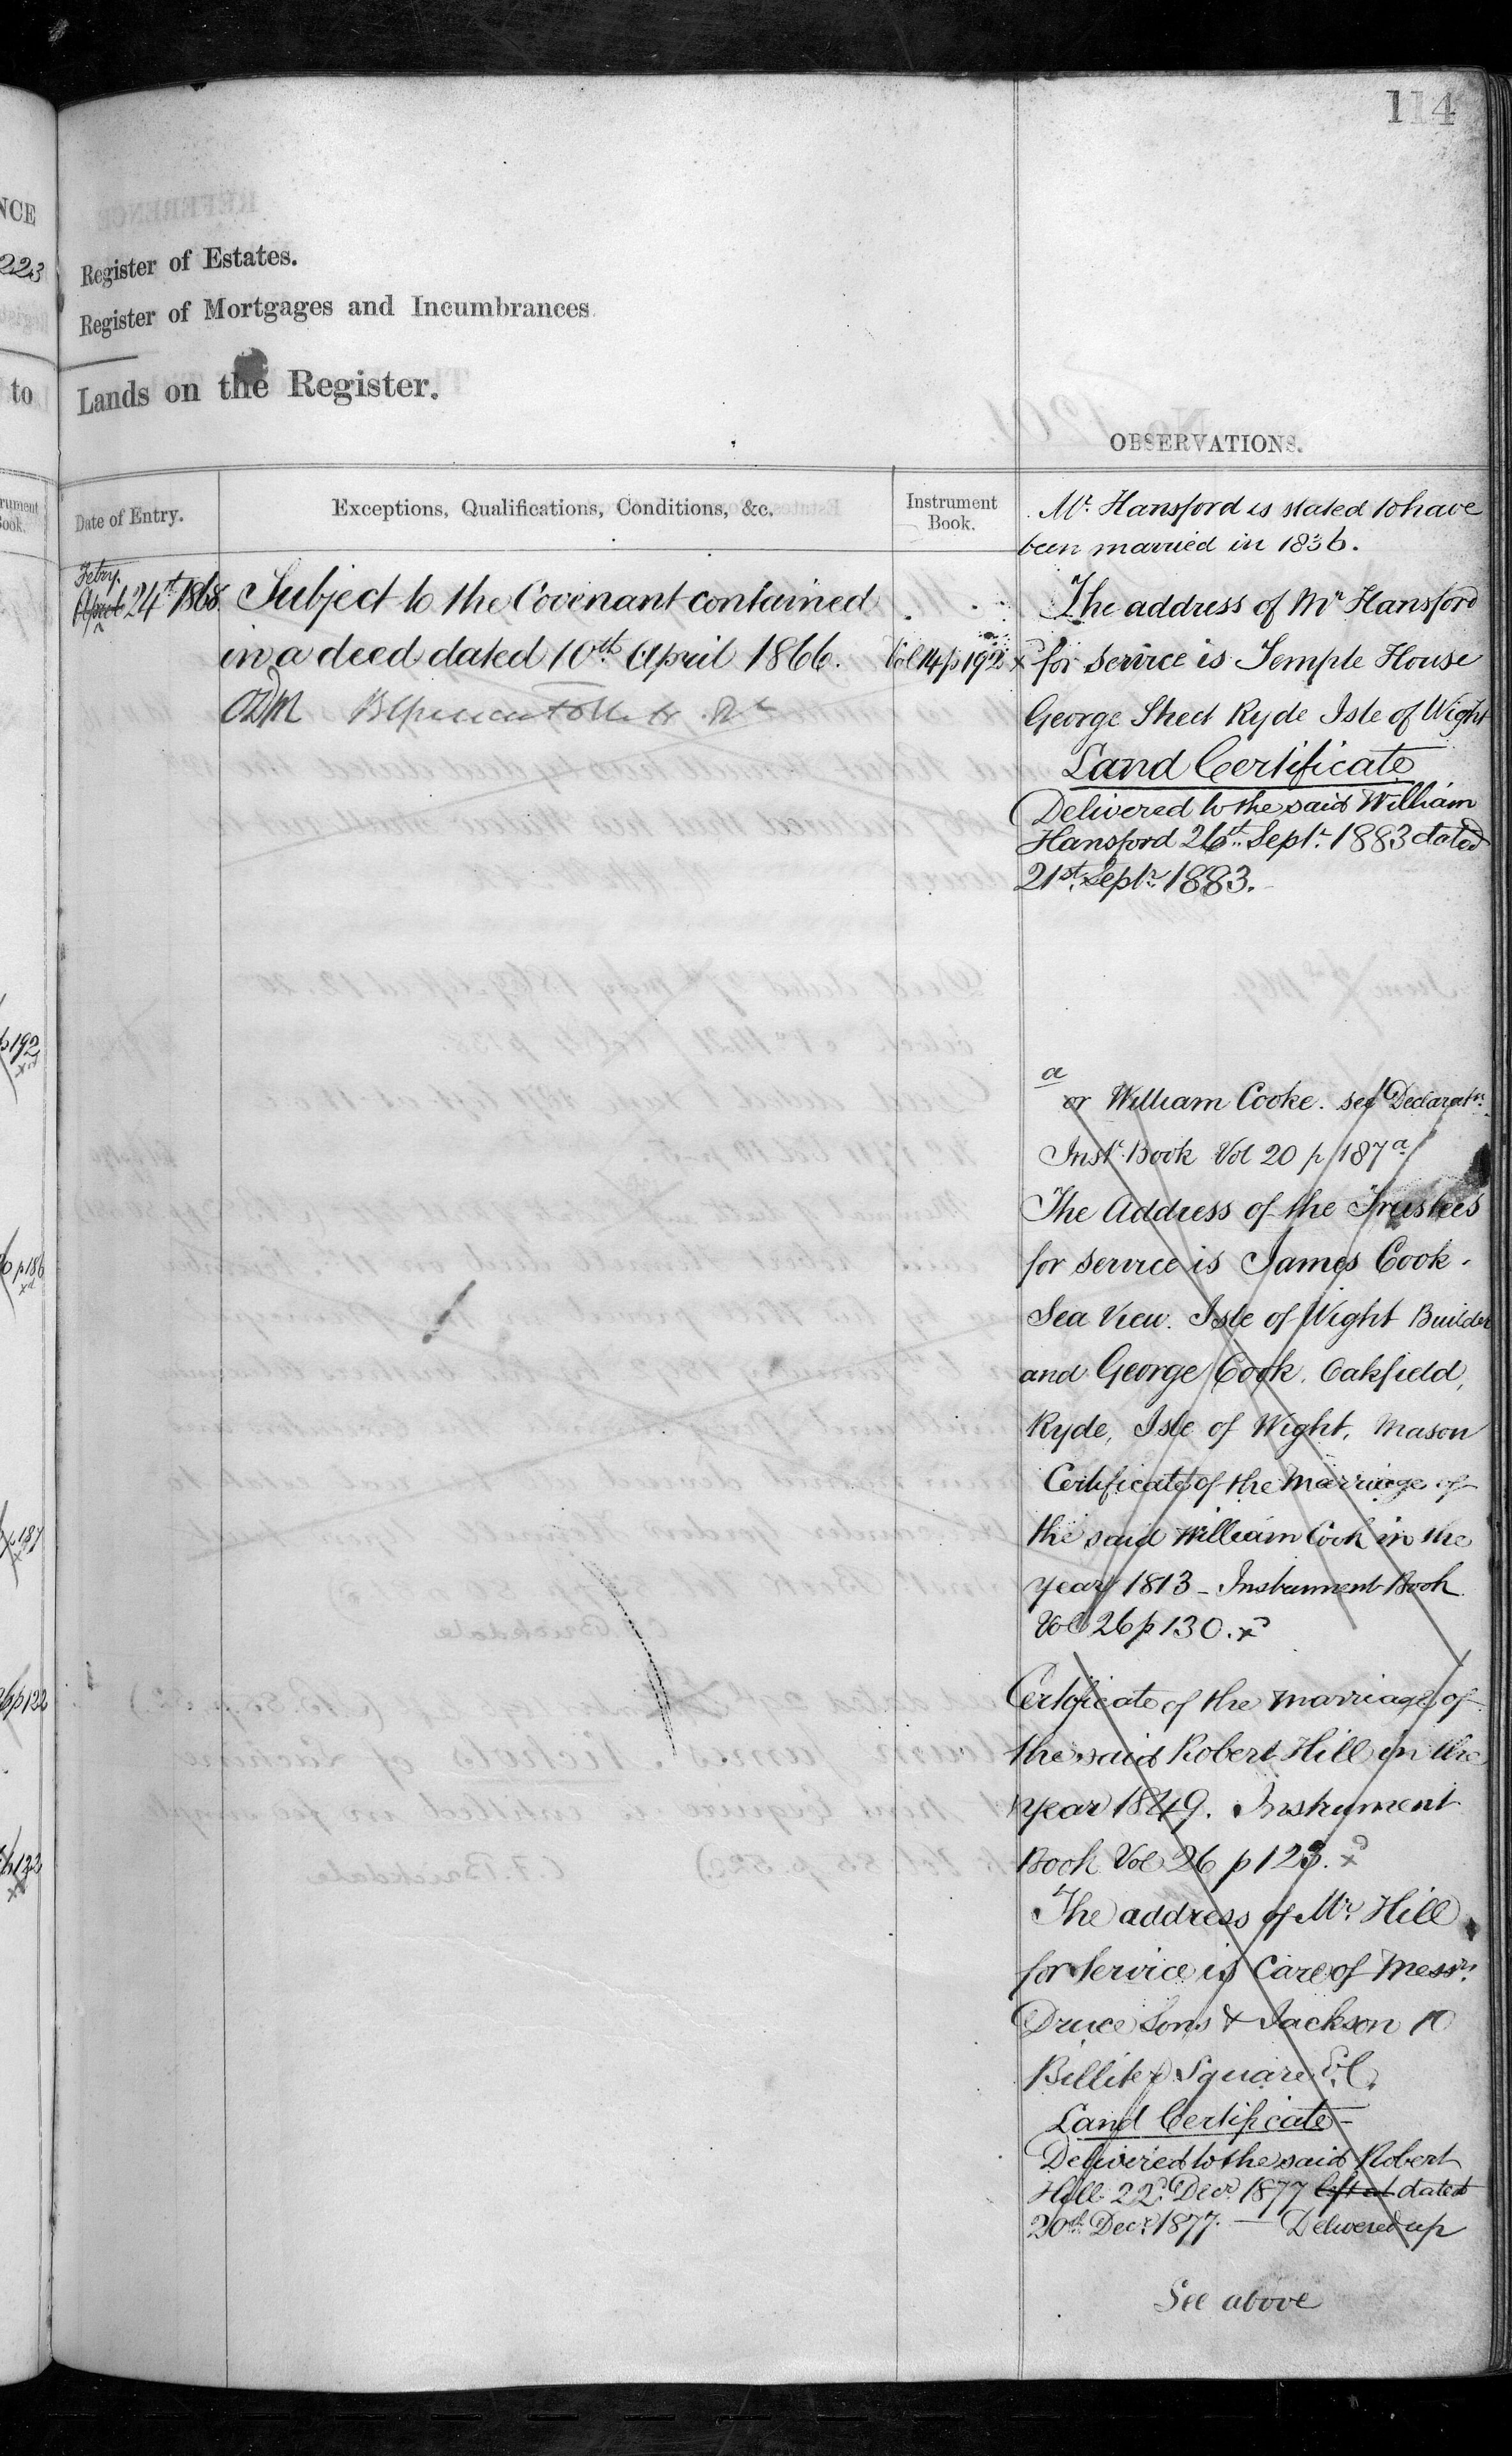 114
NCE
223
to
Register of Estates.
Register of Mortgages and Incumbrances.
Lands on the Register.
OBSERVATIONS.
Date of Entry.
Exceptions, Qualifications, Conditions, &c.
Instrument
Book.
Febry.
April 24th 1868
Subject to the Covenant contained
in a deed dated 10th April 1866.
Vol 14 p 192
Mr. Hansford is stated to have
been married in 1836.
The address of Mr Hansford
for service is Temple House
George Street Ryde Isle of Wight
Land Certificate
Delivered to the said William
Hansford 26th Septr. 1883 dated
21st Septr 1883.
a
or William Cooke. see Declaratn.
Instt. Book Vol 20 p 187a
The Address of the Trustees
for service is James Cook.
Sea View. Isle of Wight Builder
and George Cook. Oakfield,
Ryde, Isle of Wight, Mason
Certificate of the Marriage of
the said William Cook in the
year 1813 – Instrument Book
Vol 26 p 130. x
Certificate of the marriage of
the said Robert Hill in the
year 1849. Instrument
Book Vol 26 p 123. x
The address of Mr. Hill
for Service is Care of Messrs.
Druce Sons & Jackson 10
Billiter Square E.C.
Land Certificate –
Delivered to the said Robert
Hill 22d. Decr. 1877 left at dated
20th Decr. 1877. — Delivered up
See above